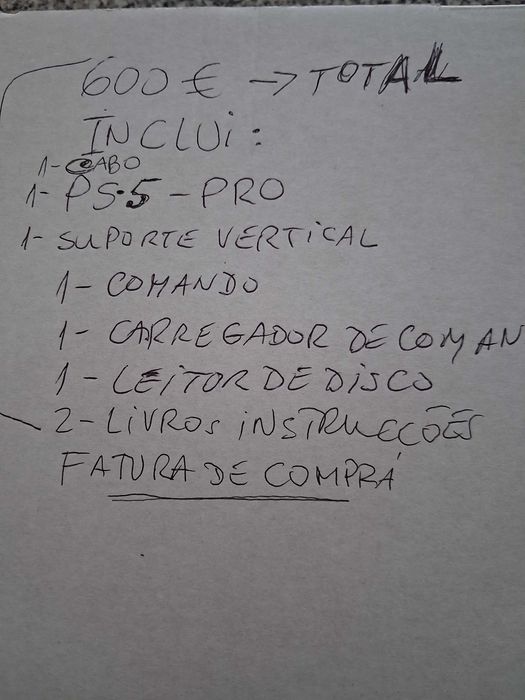 600 € → TOTAL
INCLUI:
1- CABO
1- PS.5 - PRO
1- SUPORTE VERTICAL
1- COMANDO
1- CARREGADOR DE COMAN
1- LEITOR DE DISCO
2- LIVROS INSTRUCÇÕES
FATURA DE COMPRÁ